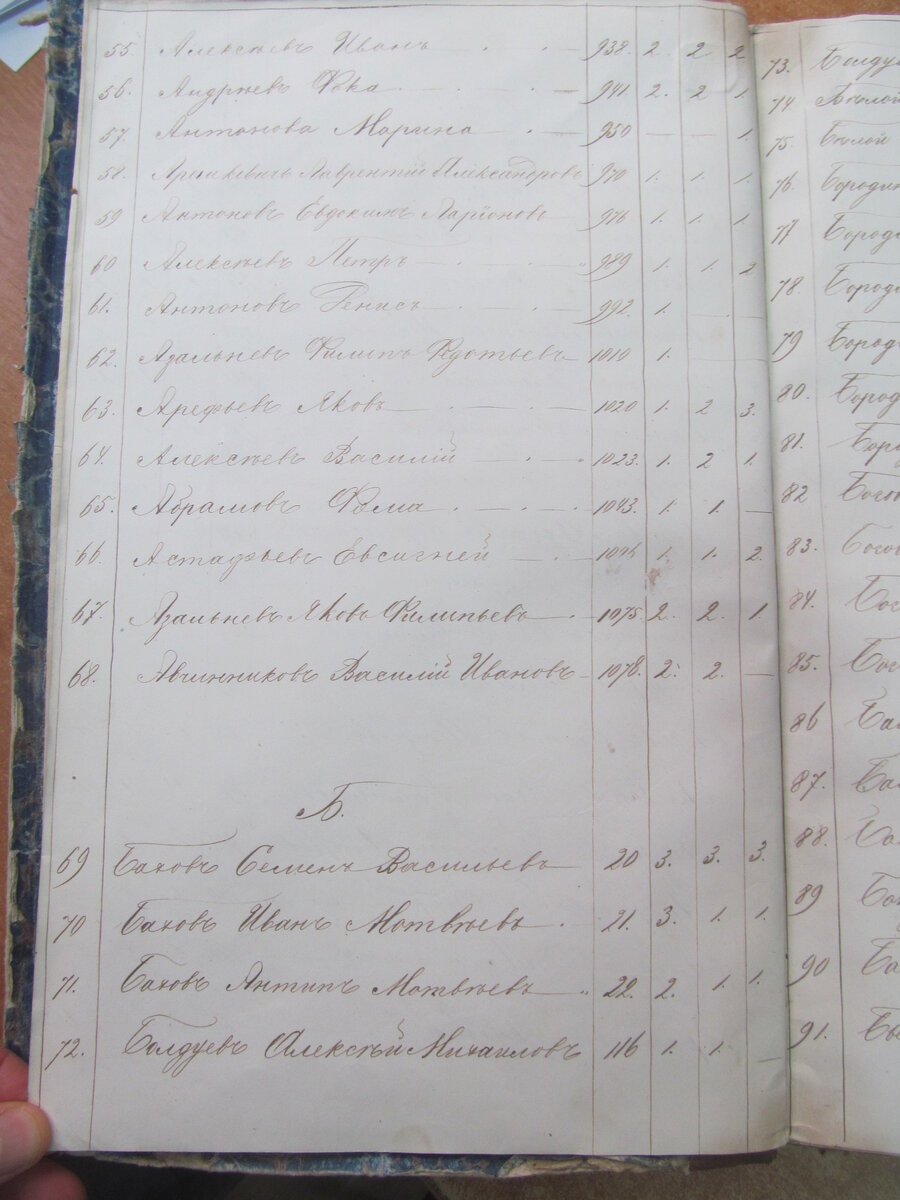 55 Алексѣевъ Иванъ 938. 2. 2. 2
56. Андрѣевъ Ѳока 941. 2. 2 1.
57. Антонова Марина 950 — — 1.
58. Лаврентій Александровъ 970 1. 1. 1.
59 Антоновъ Евдокимъ Ларіоновъ 976 1. 1. 1.
60 Алексѣевъ Петръ 989 1. 1. 2
61. Антоновъ Денисъ 992. 1.
62. Филипъ 1010 1.
63. Арефьевъ Яковъ 1020 1. 2 3.
64. Алексѣевъ Василій 1023. 1. 2 1.
65. Абрамовъ Ѳома 1043. 1. 1. —
66 Астафьевъ Евсигней 1. 1. 2.
67. Яковъ Филипьевъ 1075. 2. 2. 1.
68. Авчинниковъ Василій Ивановъ 1078. 2. 2. —
Б.
69 Баховъ Семенъ Васильевъ 20 3. 3. 3.
70 Баховъ Иванъ Матвѣевъ 21. 3. 1. 1.
71. Баховъ Антипъ Матвѣевъ 22. 2. 1. 1.
72. Балдуевъ Алексѣй Михаиловъ 116 1. 1. —
73.
74
75.
76.
77
78.
79
80.
81.
82
83.
84.
85.
86
87.
88.
89
90
91.